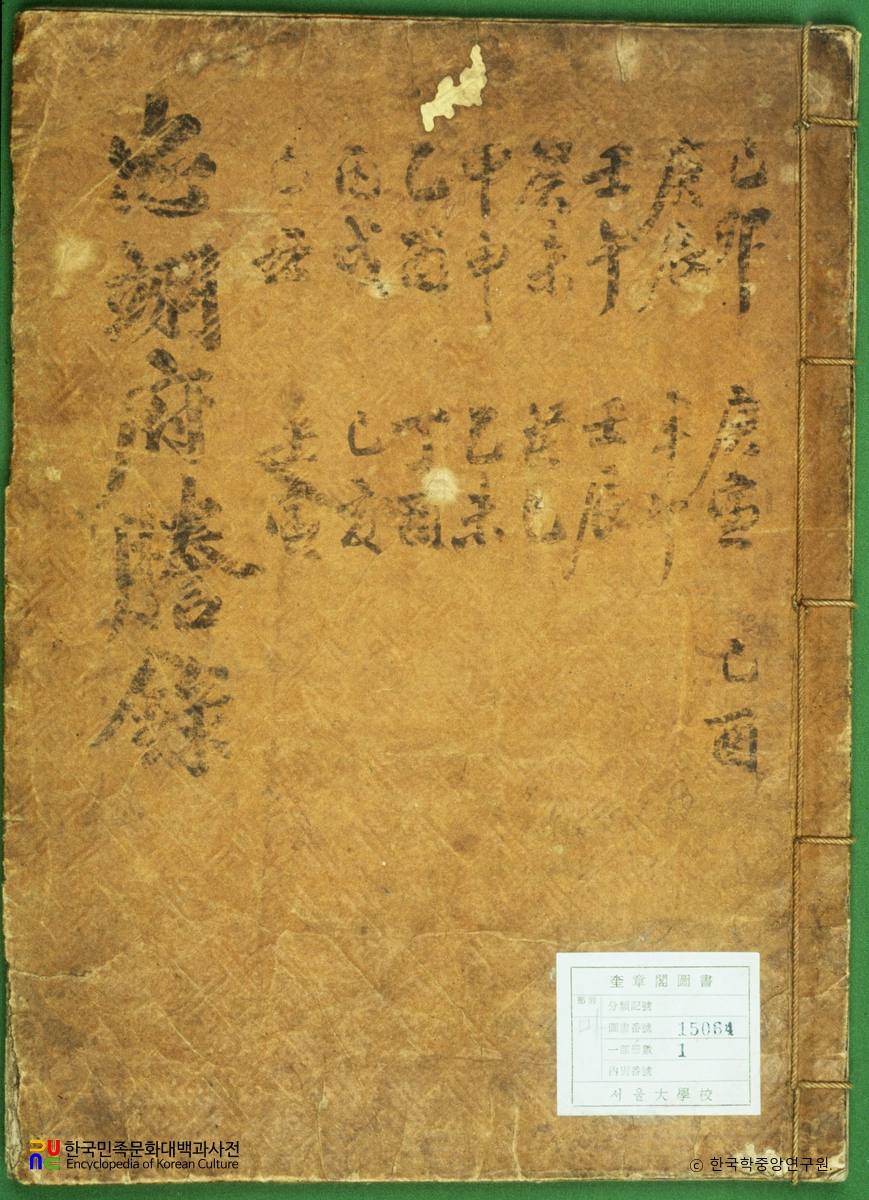 己卯
庚辰
壬午
癸未
甲申
乙酉
丙戌
庚寅
辛卯
壬辰
癸巳
乙未
丁酉
己亥
壬寅
己酉
忠翊府謄錄
奎章閣圖書
分類記號
圖書番號 15064
一部冊數 1
內別番號
서울大學校
한국민족문화대백과사전
Encyclopedia of Korean Culture
© 한국학중앙연구원.